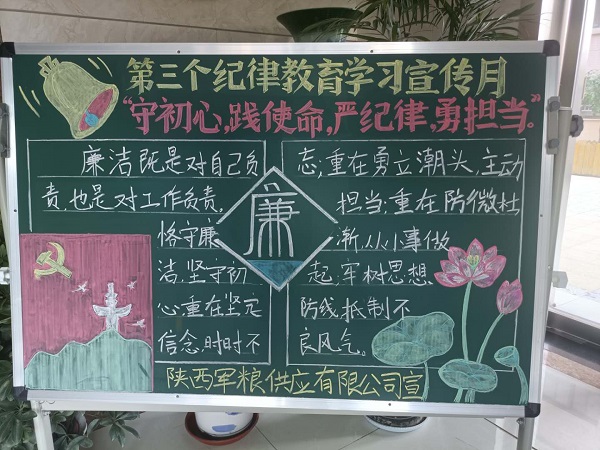 第三个纪律教育学习宣传月
“守初心,践使命,严纪律,勇担当。”
廉洁既是对自己负
责,也是对工作负责,
恪守廉
洁,坚守初
心重在坚定
信念,时时不
忘;重在勇立潮头,主动
担当;重在防微杜
渐,从小事做
起,牢树思想
防线,抵制不
良风气。
廉
陕西军粮供应有限公司宣